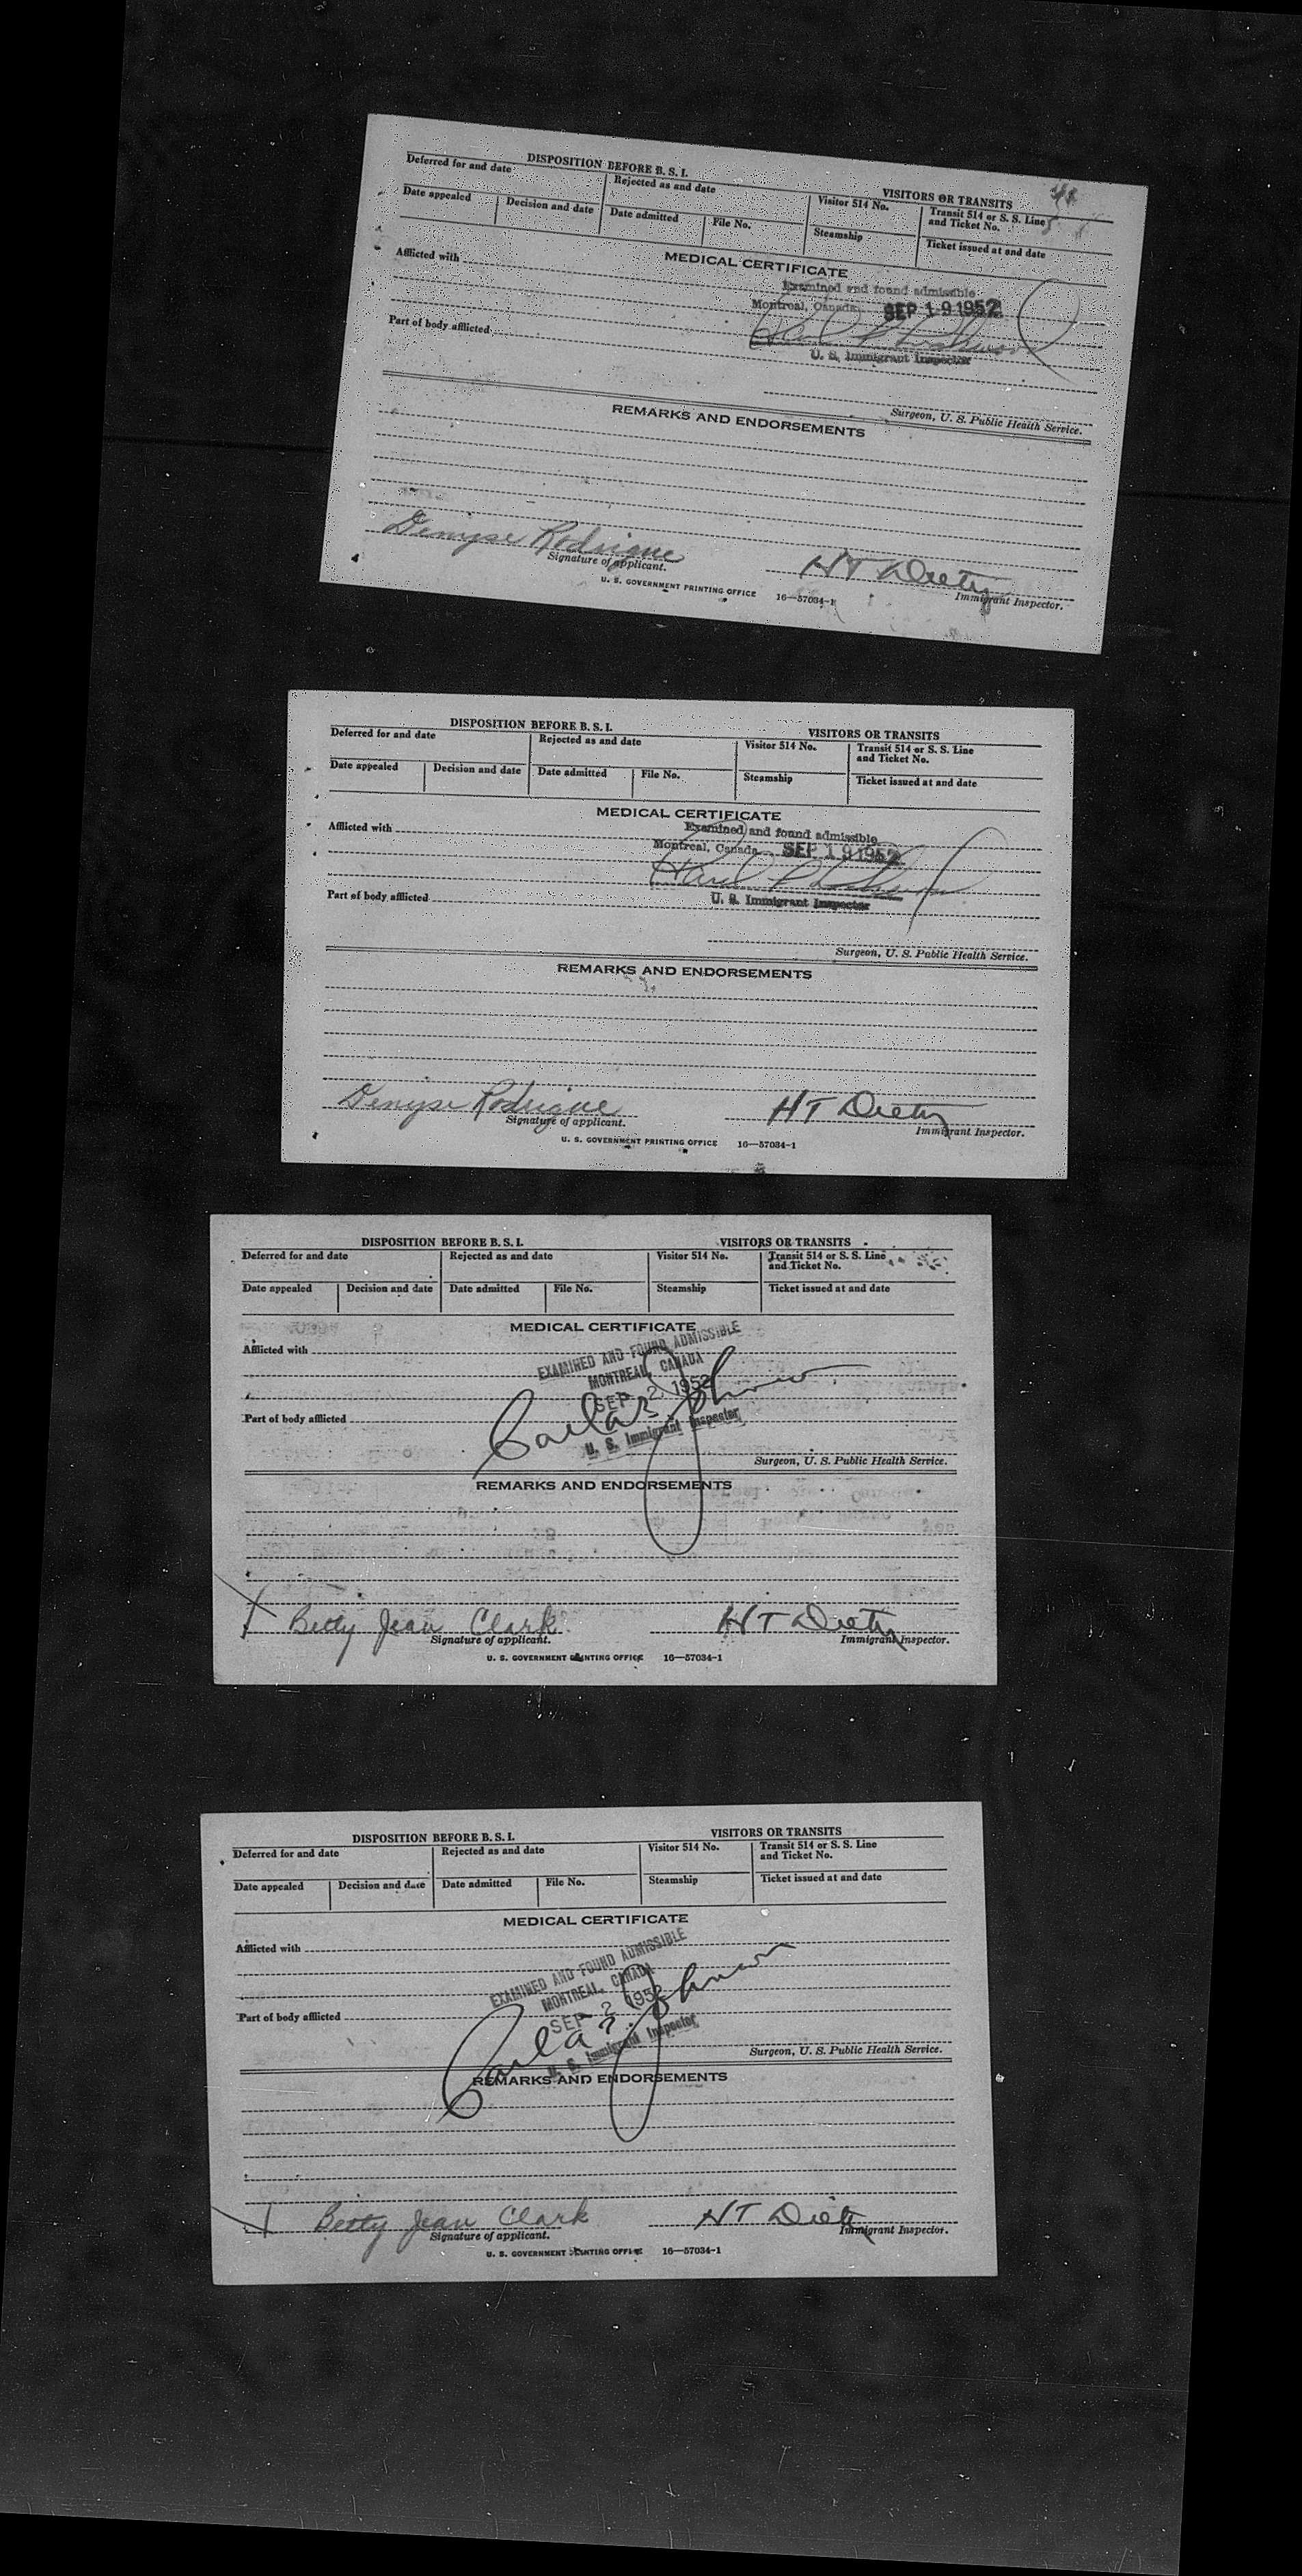 DISPOSITION BEFORE B. S. I. VISITORS OR TRANSITS
Deferred for and date Rejected as and date Visitor 514 No. Transit 514 or S. S. Line and Ticket No.
Date appealed Decision and date Date admitted File No. Steamship Ticket issued at and date
MEDICAL CERTIFICATE
Afflicted with
Examined and found admissible
Montreal, Canada SEP 19 1952
Part of body afflicted
U. S. Immigrant Inspector
Surgeon, U. S. Public Health Service.
REMARKS AND ENDORSEMENTS
Denyse Rodrigue HT Dietz
Signature of applicant. Immigrant Inspector.
U. S. GOVERNMENT PRINTING OFFICE 16—57034-1
DISPOSITION BEFORE B. S. I. VISITORS OR TRANSITS
Deferred for and date Rejected as and date Visitor 514 No. Transit 514 or S. S. Line and Ticket No.
Date appealed Decision and date Date admitted File No. Steamship Ticket issued at and date
MEDICAL CERTIFICATE
Afflicted with
Examined and found admissible
Montreal, Canada SEP 19 1952
Part of body afflicted
U. S. Immigrant Inspector
Surgeon, U. S. Public Health Service.
REMARKS AND ENDORSEMENTS
Denyse Rodrigue HT Dietz
Signature of applicant. Immigrant Inspector.
U. S. GOVERNMENT PRINTING OFFICE 16—57034-1
DISPOSITION BEFORE B. S. I. VISITORS OR TRANSITS
Deferred for and date Rejected as and date Visitor 514 No. Transit 514 or S. S. Line and Ticket No.
Date appealed Decision and date Date admitted File No. Steamship Ticket issued at and date
MEDICAL CERTIFICATE
Afflicted with
EXAMINED AND FOUND ADMISSIBLE
MONTREAL, CANADA
SEP 2 1952
Part of body afflicted
U. S. Immigrant Inspector
Surgeon, U. S. Public Health Service.
REMARKS AND ENDORSEMENTS
X Betty Jean Clark HT Dietz
Signature of applicant. Immigrant Inspector.
U. S. GOVERNMENT PRINTING OFFICE 16—57034-1
DISPOSITION BEFORE B. S. I. VISITORS OR TRANSITS
Deferred for and date Rejected as and date Visitor 514 No. Transit 514 or S. S. Line and Ticket No.
Date appealed Decision and date Date admitted File No. Steamship Ticket issued at and date
MEDICAL CERTIFICATE
Afflicted with
EXAMINED AND FOUND ADMISSIBLE
MONTREAL, CANADA
SEP 2 1952
Part of body afflicted
U. S. Immigrant Inspector
Surgeon, U. S. Public Health Service.
REMARKS AND ENDORSEMENTS
X Betty Jean Clark HT Dietz
Signature of applicant. Immigrant Inspector.
U. S. GOVERNMENT PRINTING OFFICE 16—57034-1